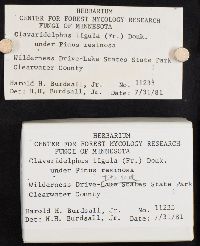 HERBARIUM
CENTER FOR FOREST MYCOLOGY RESEARCH
FUNGI OF MINNESOTA
Clavariadelphus ligula (Fr.) Donk.
under Pinus resinosa
Wilderness Drive-Lake States State Park
Clearwater County
Harold H. Burdsall, Jr. No. 11235
Det: H.H. Burdsall, Jr. Date: 7/31/81
HERBARIUM
CENTER FOR FOREST MYCOLOGY RESEARCH
FUNGI OF MINNESOTA
Clavariadelphus ligula (Fr.) Donk.
under Pinus resinosa
Wilderness Drive-Lake States State Park
Clearwater County
Harold H. Burdsall, Jr. No. 11235
Det: H.H. Burdsall, Jr. Date: 7/31/81